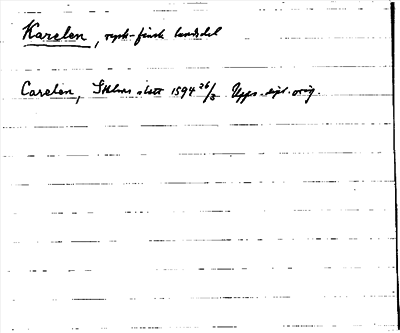 Karelen, rysk-finsk landsdel
Carelen, Sthlms slott 1594 26/3 Upps. dipl. orig.